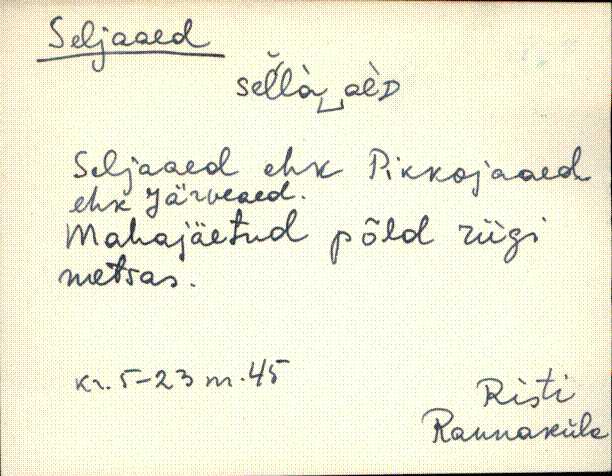 Seljaaed
sĕllà aèD
Seljaaed ehk Pikkojaaed
ehk Järveaed.
Mahajäetud põld riigi
metsas.
kr. 5-23 m. 45
Risti
Rannaküla